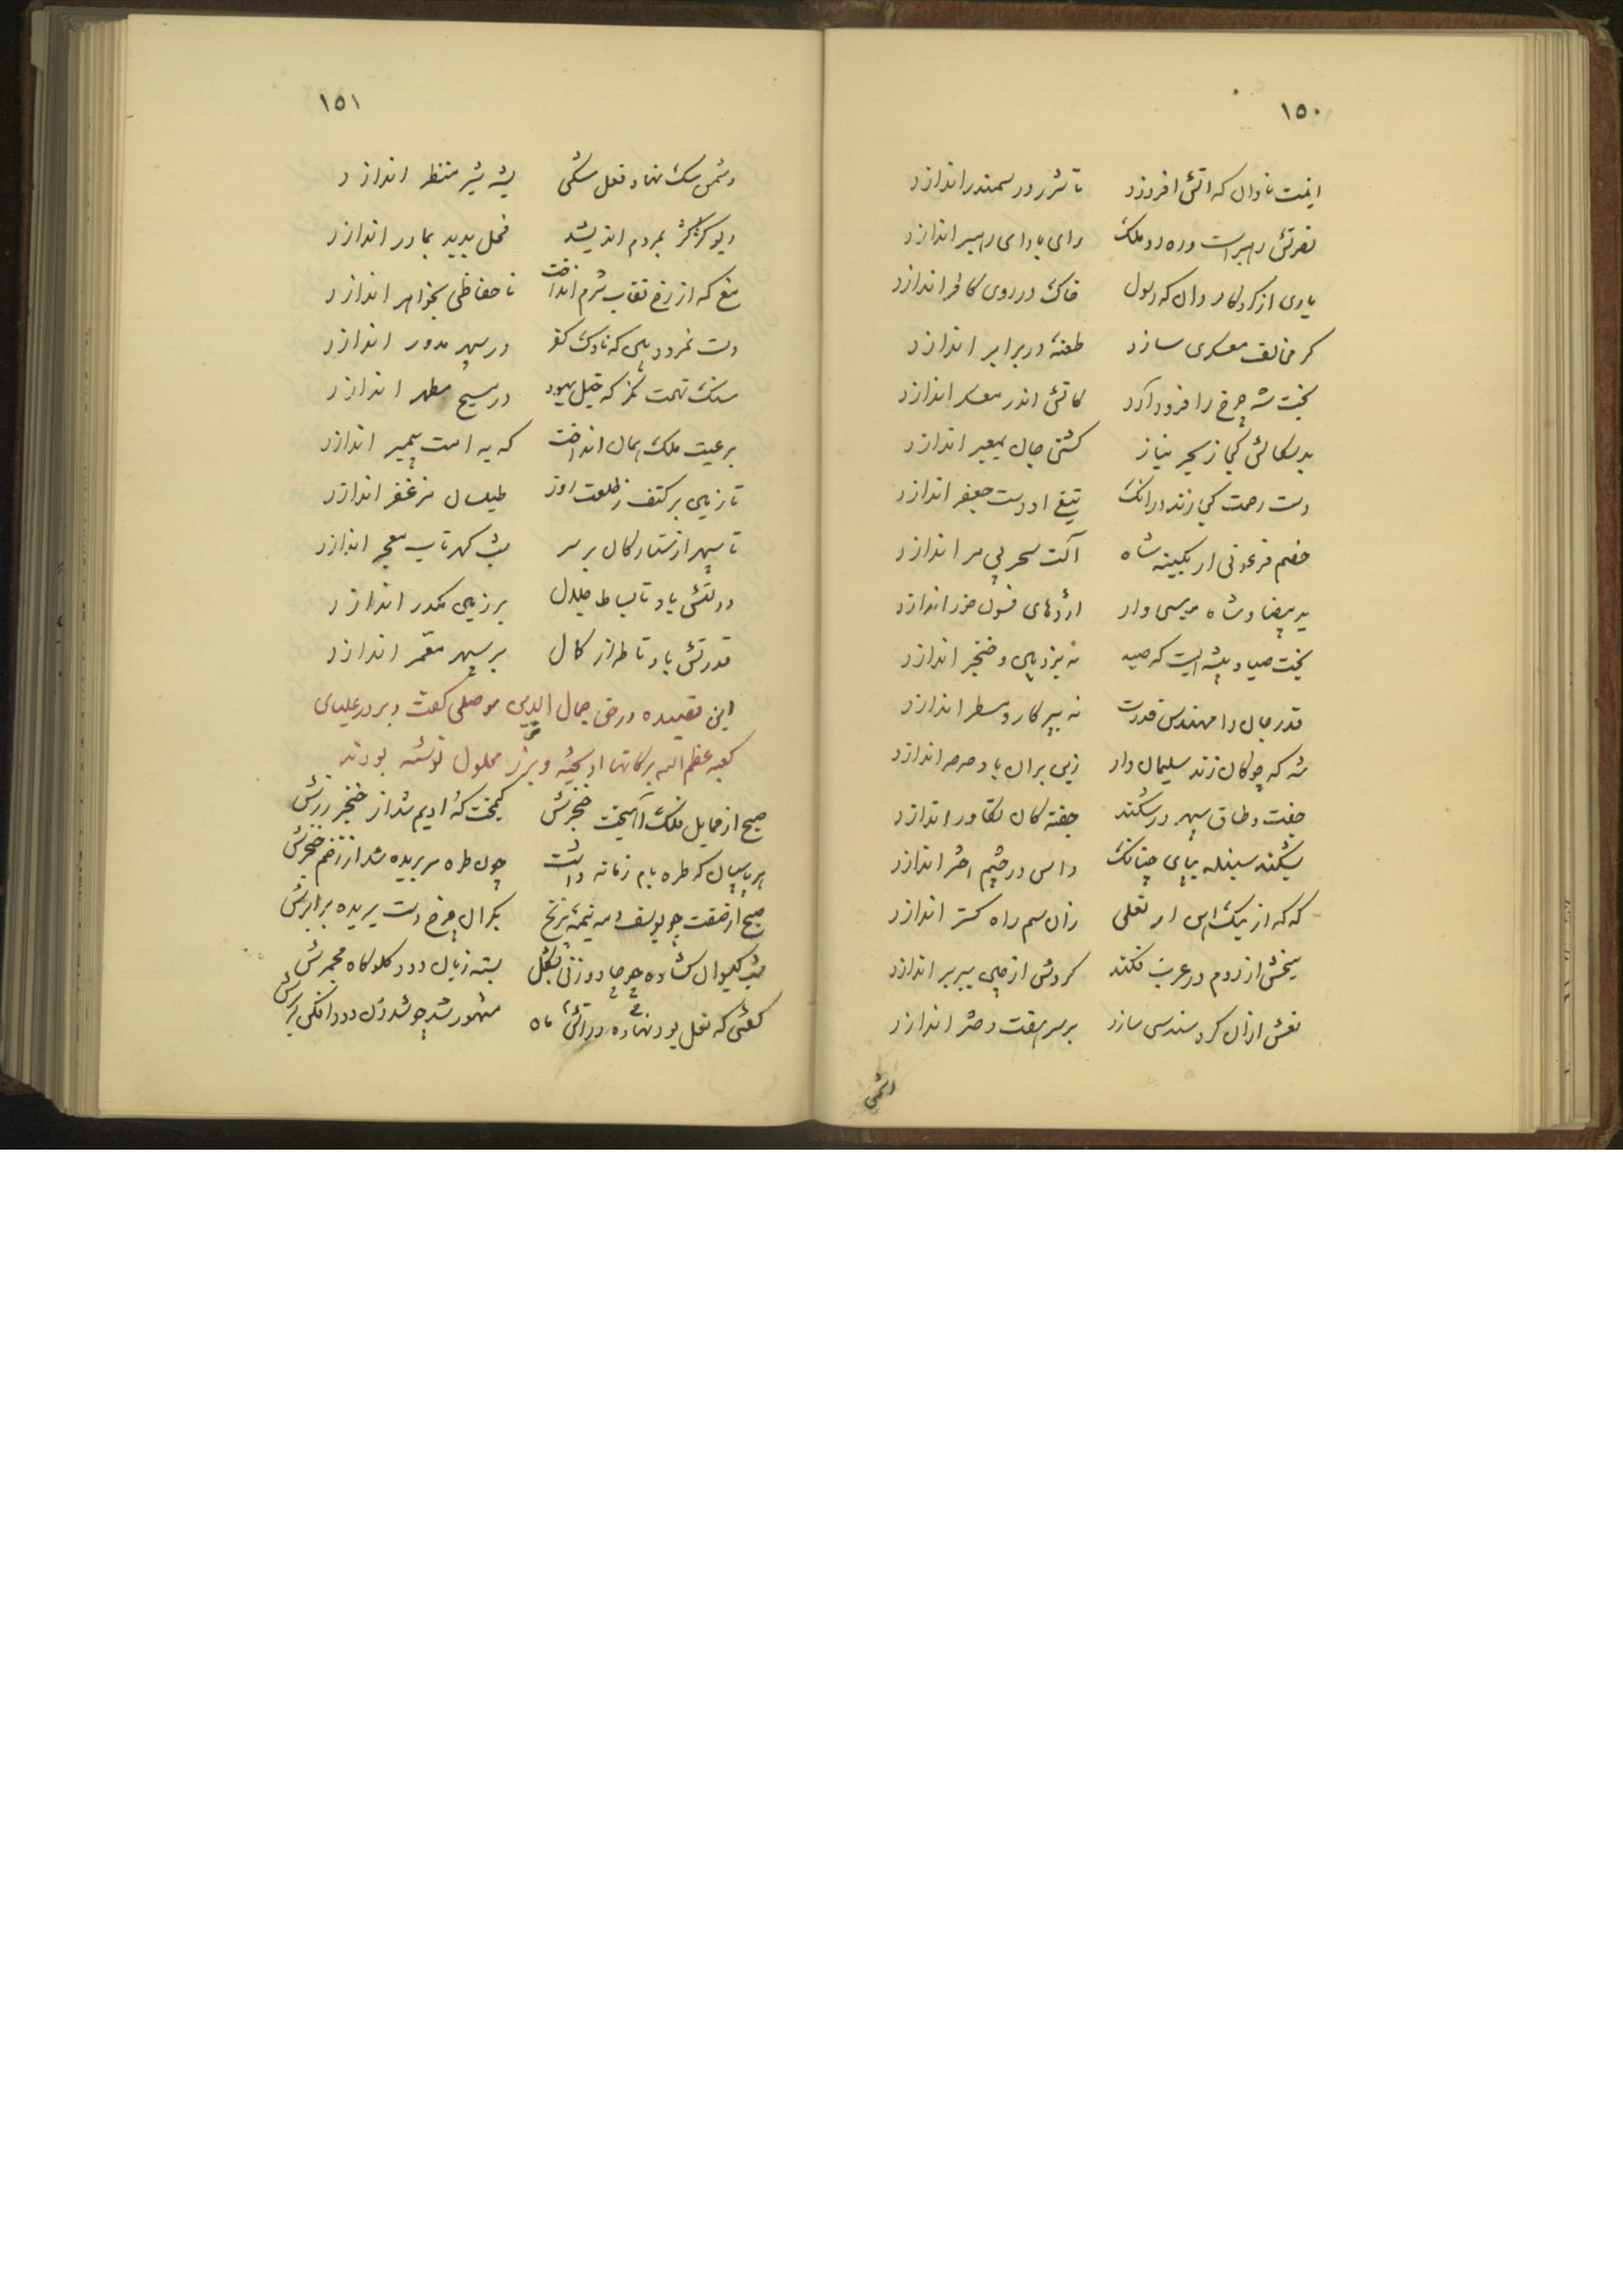 ١٥٠
اینت نادان که آتش افروزد تا شرر در سمندر اندازد
نصرتش رهبر است و ره رو ملک رای با رای رهبر اندازد
یاری از کردگار دان که رسول خاک در روی کافر اندازد
کر مخالف معسکری سازد طعنهٔ در برابر اندازد
بخت شه چرخ را فرود آرد کاتش اندر معسکر اندازد
بدسکالش کجا ز بحر نیاز کشتی جان بمعبر اندازد
دست رحمت کجا زند در آنک تیغ او دست جعفر اندازد
خصم فرعونی ار بکینهٔ شاه آلت سحر بی مر اندازد
ید بیضا و شاه موسی وار اژدهای فسون خور اندازد
بخت صیاد پیشه ایست که صید نه بزوبین و خنجر اندازد
قدر جان را مهندس قدرت نه بپرکار و مسطر اندازد
شه که چوکان زند سلیمان وار زین بران باد صرصر اندازد
جفت و طاق سپهر در شکند جفته کان تکاور اندازد
بشکند سنبله بپای چنانک داس در چشم اختر اندازد
که که از نیک راس ار نعلی زان سم راه کستر اندازد
سیخش از روم در عرب فکند کردش از چین ببربر اندازد
نعش ازان کرد سندسی سازد بر سر هفت دختر اندازد
دشمن
١٥١
دشمن سک نهاد و فعل سکی پیشهٔ شیر منتظر اندازد
دیو کز کژ بمردم اندیشد فحل بدید بمادر اندازد
مغ که از رخ نقاب شرم انداخت نا حفاظی بخواهر اندازد
دست نمرود بین که ناوک کفر در سپهر مدور اندازد
سنک تهمت نکر که خیل یهود در مسیح مطهر اندازد
بر عیت ملک همان انداخت که به امت پیمبر اندازد
تا زمین بر کتف ز خلعت روز طیلسان مزعفر اندازد
تا سپهر از ستارکان بر سر بشب کهر تاب معجر اندازد
دولتش باد تا بساط جلال بر زمین مکدر اندازد
قدرتش باد تا طراز کمال بر سپهر مقمر اندازد
این قصیده در حق جمال الدین موصلی کفت و بر در علیای
کعبه عظم الله برکاتها آویخته و بزر محلول نوشته بودند
صبح از حمایل فلک آهیخت خنجرش کیمخت که ادیم شد از خنجر زرش
هر پاسبان که طره بام زمانه داشت چون طره سر بریده شد از زخم خنجرش
صبح از صفت چو یوسف و مه نیمهٔ ترنج بکران چرخ دست بریده برابرش
شب کیسوان کشاده چو جادو زنی بشکل بسته زبان ز دود کلوکاه مجمرش
کفتی که نعل بود نهاده در آتش ماه مشهور شد چو شد زن دود افکن از برش